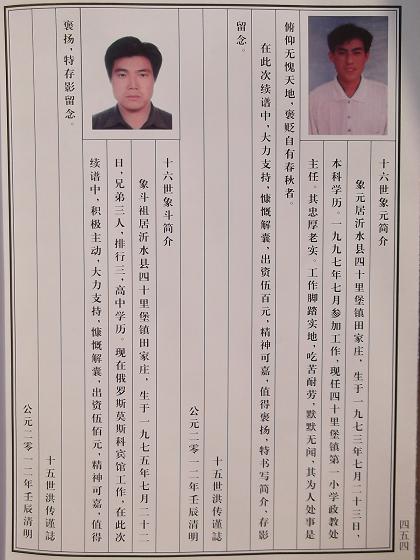 十六世象元简介
象元居沂水县四十里堡镇田家庄，生于一九七三年七月二十三日，
本科学历。一九九七年七月参加工作，现任四十里堡镇第一小学政教处
主任。其忠厚老实。工作脚踏实地，吃苦耐劳，默默无闻，其为人处事是
俯仰无愧天地，褒贬自有春秋者。
在此次续谱中，大力支持，慷慨解囊，出资伍百元，精神可嘉，值得褒扬，特书写简介，存影
留念。
十五世洪传谨誌
公元二零一二年壬辰清明
十六世象斗简介
象斗祖居沂水县四十里堡镇田家庄，生于一九七五年七月二十二
日，兄弟三人，排行三，高中学历。现在俄罗斯莫斯科宾馆工作，在此次
续谱中，积极主动，大力支持，慷慨解囊，出资伍佰元，精神可嘉，值得
褒扬，特存影留念。
十五世洪传谨誌
公元二零一二年壬辰清明
四五四